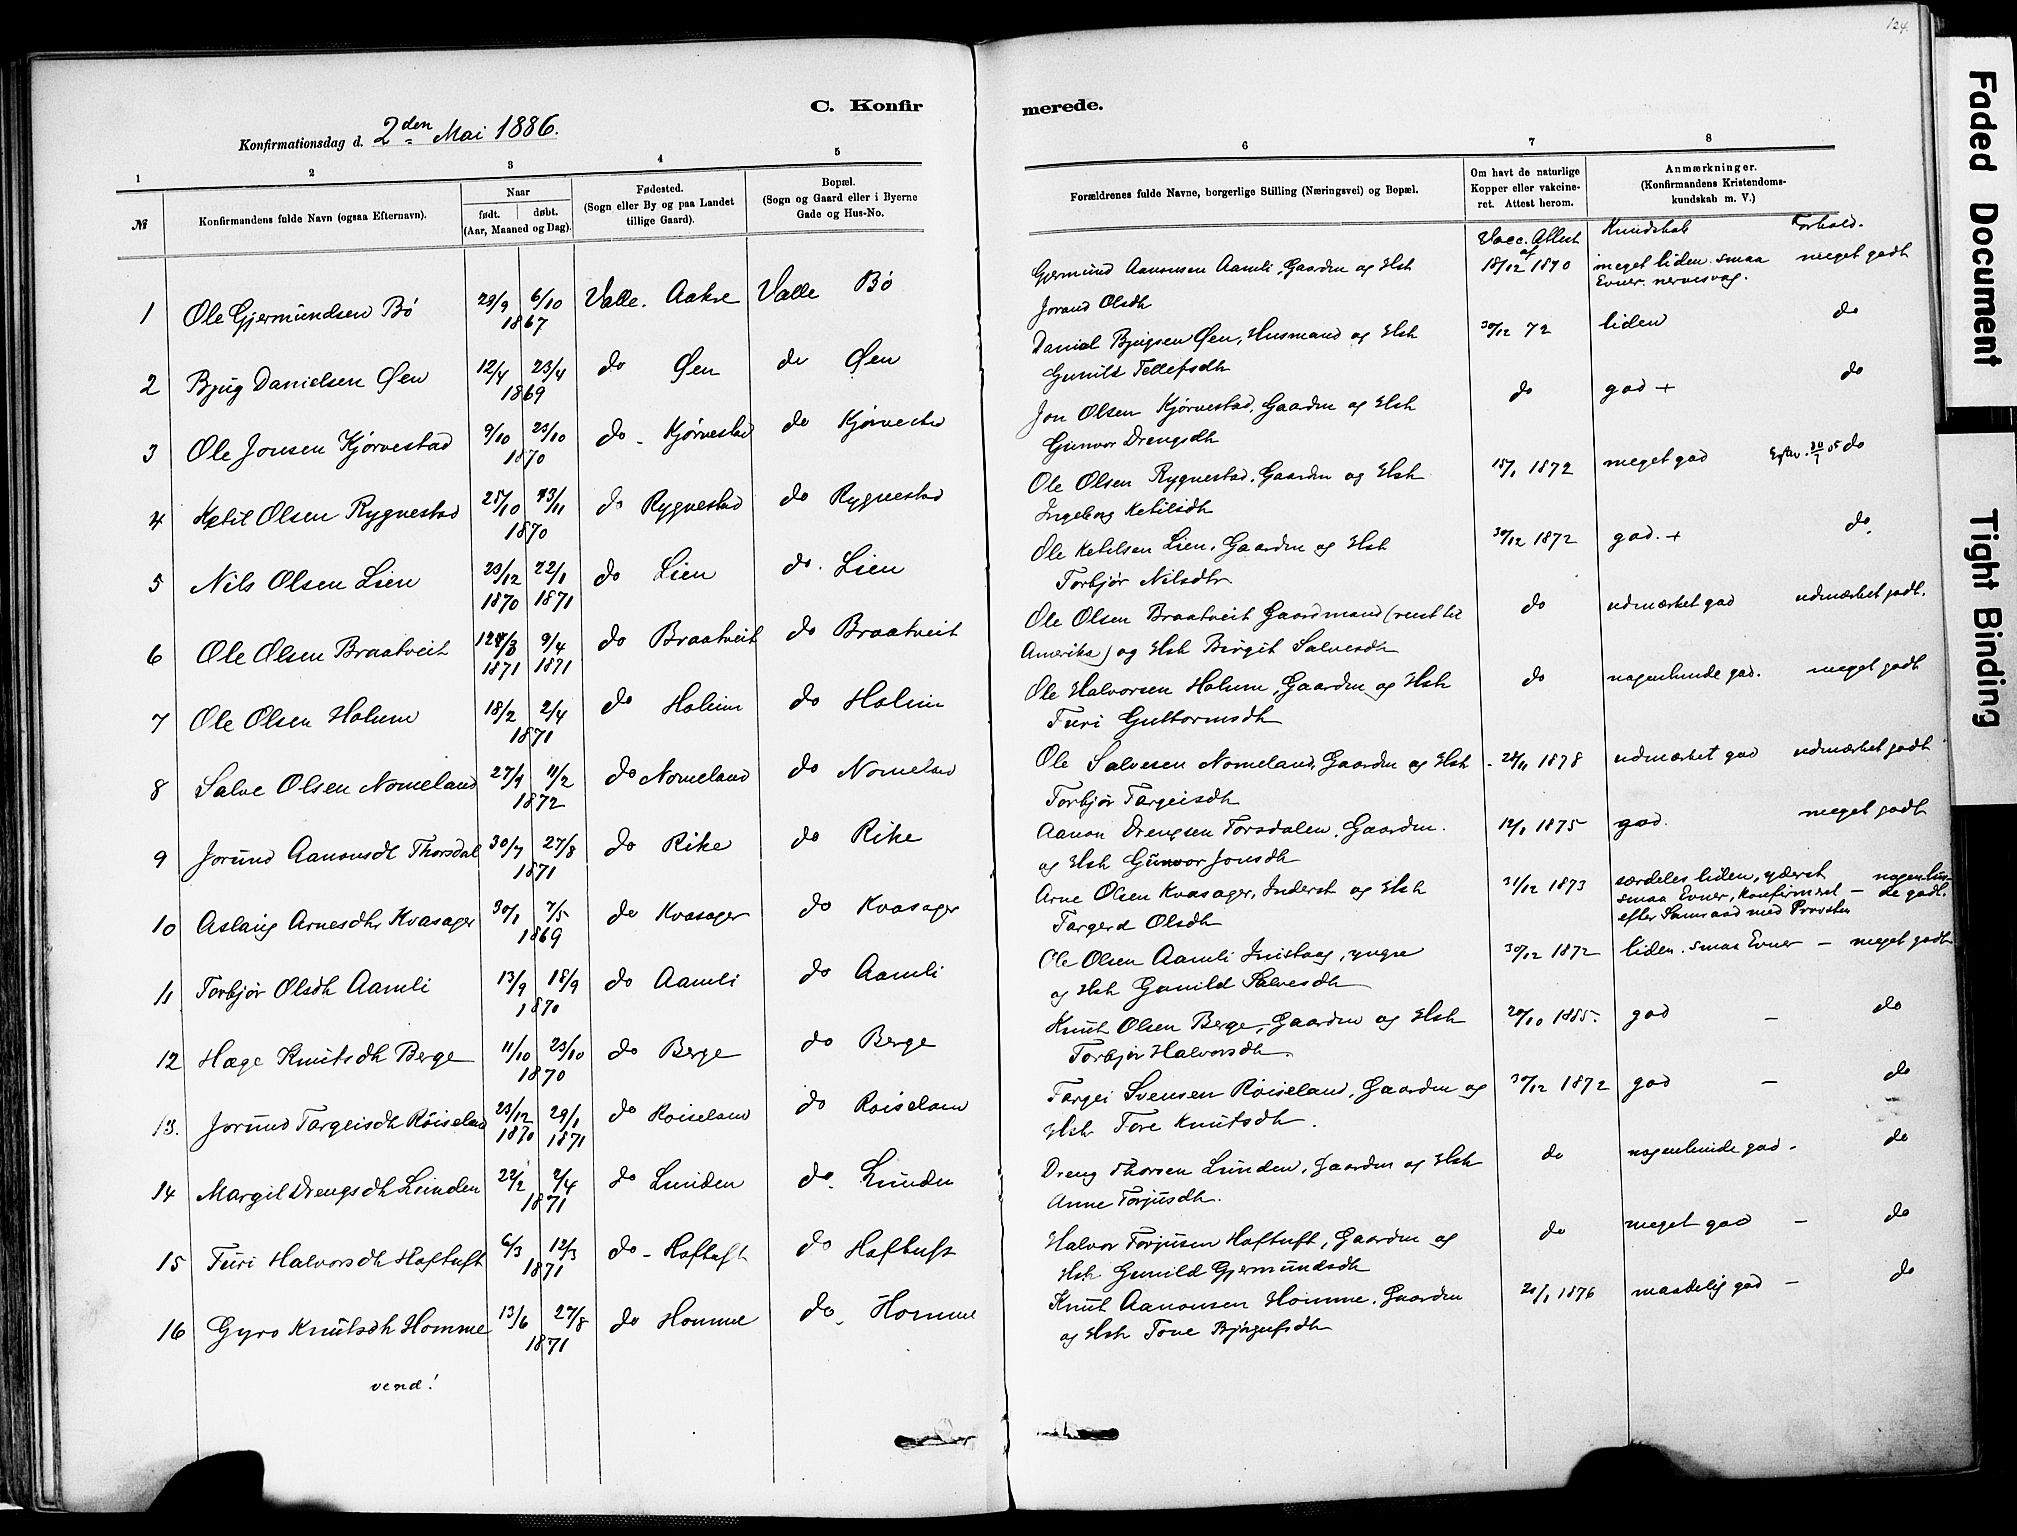 124.
C. Konfirmerede.
Konfirmationsdag d. 2den Mai 1886.
1 2 3 4 5 6 7 8
№
Konfirmandens fulde Navn (ogsaa Efternavn).
Naar
født. døbt.
(Aar, Maaned og Dag).
Fødested.
(Sogn eller By og paa Landet
tillige Gaard).
Bopæl.
(Sogn og Gaard eller i Byerne
Gade og Hus-No.
Forældrenes fulde Navne, borgerlige Stilling (Næringsvei) og Bopæl.
Om havt de naturlige
Kopper eller vakcine-
ret. Attest herom.
Anmærkninger.
(Konfirmandens Kristendoms-
kundskab m. V.)
Vacc. Attest af Kundskab Forhold.
1 Ole Gjermundsen Bø 28/9 6/10 1867 Valle. Aakre Valle Bø
Gjermund Aanonsen Aamli, Gaardm og Hst 18/12 1870 meget liden. smaa meget godt
Jorand Olsdt Evner. nervesvag.
2 Bjug Danielsen Øen 12/4 23/4 1869 do Øen do Øen
Daniel Bjugsen Øen, Husmand og Hst 30/12 72 liden do
Gunild Tellefsdt
3 Ole Jonsen Kjørvestad 9/10 23/10 1870 do - Kjørvestad do Kjørvestad
Jon Olsen Kjørvestad, Gaardm og Hst do god + do
Gunvor Drengsdt
4 Ketil Olsen Rygnestad 25/10 13/11 1870 do Rygnestad do Rygnestad
Ole Olsen Rygnestad, Gaardm og Hst 15/1 1872 meget god do
Ingeborg Ketilsdt
5 Nils Olsen Lien 23/12 1870 22/1 1871 do Lien do. Lien
Ole Ketilsen Lien, Gaardm og Hst 30/12 1872 god. + do
Torbjør Nilsdtr
6 Ole Olsen Braatveit 9/4 1871 1871 do Braatveit do Braatveit
Ole Olsen Braatveit Gaardmand (reist til do udmærket god udmærket godt.
Amerika) og Hst Birgit Salvesdt
7 Ole Olsen Holum 18/2 2/4 1871 do Holum do Holum
Ole Halvorsen Holum, Gaardm og Hst do nogenlunde god. meget godt
Turi Guttormsdt
8 Salve Olsen Nomeland 11/2 1872 do Nomeland do Nomeland
Ole Salvesen Nomeland, Gaardm og Hst 1878 udmærket god udmærket godt
Torbjør Targeisdt
9 Jorund Aanonsdt Thorsdal 30/7 27/8 1871 do Rike do Rike
Aanon Drengsen Torsdalen, Gaardm. 12/1 1875 god. meget godt
og Hst Gunvor Jonsdt
10 Aslaug Arnesdtr Kvasager 30/1 7/5 1869 do Kvasager do Kvasager
Arne Olsen Kvasager, Inderst og Hst 31/12 1873 særdeles liden, yderst nogenlun-
Targerd Olsdt smaa Evner, konfirmeret - de godt.
efter Samraad med Provsten
11 Torbjør Olsdt Aamli 13/9 18/9 1870 do Aamli do Aamli
Ole Olsen Aamli Inistaag, yngre 30/12 1872 liden. smaa Evner - meget godt
og Hst Gunild Salvesdt
12 Hæge Knutsdt Berge 11/10 23/10 1870 do Berge do Berge
Knut Olsen Berge, Gaardm og Hst 20/10 1885. god - do
Torbjør Halvorsdt.
13. Jorund Targeisdt Røiseland 23/12 1870 29/1 1871 do Røiseland do Røiseland
Targei Svensen Røiseland, Gaardm og 30/12 1872 god - do
Hst Tore Knutsdt.
14 Margit Drengsdt Lunden 22/2 2/4 1871 do Lunden do. Lunden
Dreng Thorsen Lunden, Gaardm og Hst do nogenlunde god - do
Anne Torjusdt.
15 Turi Halvorsdt Hoftuft 6/3 12/3 1871 do - Hoftuft do Hoftuft
Halvor Torjusen Hoftuft, Gaardm og do meget god - do
Hst Gunild Gjermundsdt
16 Gyro Knutsdt Homme 13/6 27/8 1871 do Homme do. Homme
Knut Aanonsen Homme. Gaardm 20/1 1876 maadelig god - do
og Hst Tone Bjørgufsdt
vend!
Faded Document
Tight Binding